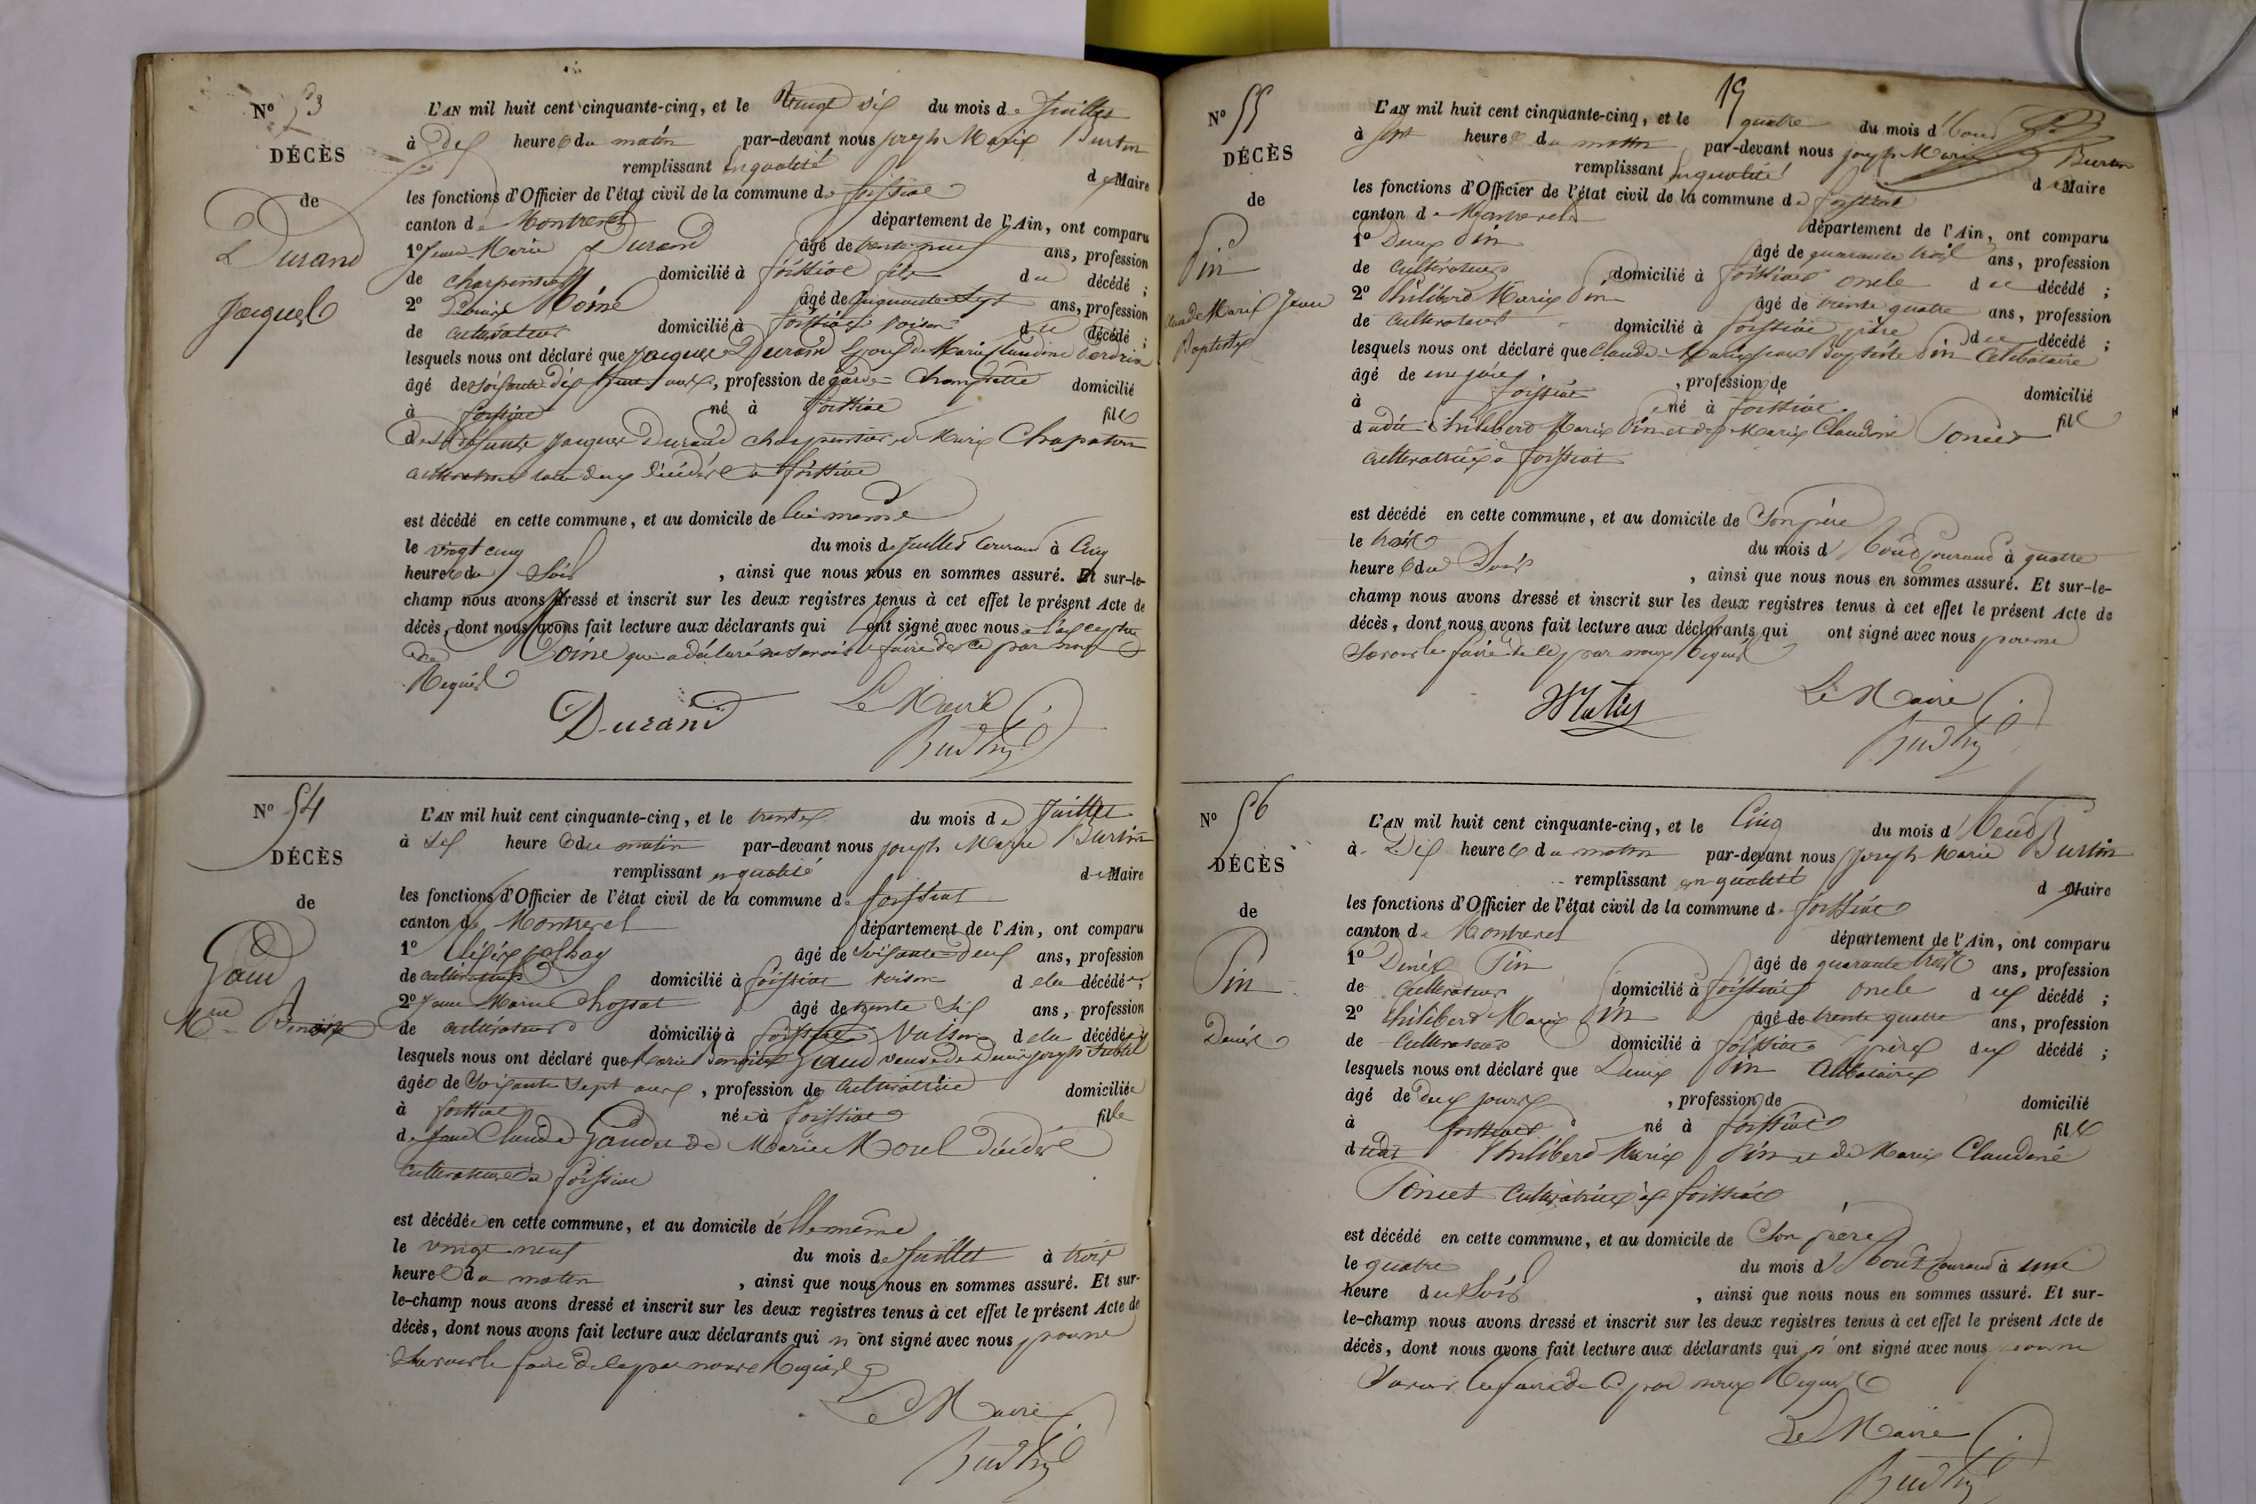 N° 53
DÉCÈS
de
Durand
Jacques
L'AN mil huit cent cinquante-cinq, et le vingt six du mois de Juillet
à dix heures du matin par-devant nous joseph Marie Burtin
remplissant en qualité de Maire
les fonctions d'Officier de l'état civil de la commune de foissiat
canton de Montrevel département de l'Ain, ont comparu
1° Jean Marie Durand âgé de trente neuf ans, profession
de charpentier domicilié à foissiat fils du décédé ;
2° Moine âgé de cinquante sept ans, profession
de cultivateur domicilié à foissiat voisin du décédé ;
lesquels nous ont déclaré que Jacques Durand Epoux de Marie Claudine
âgé de soixante dix huit ans, profession de garde Champêtre domicilié
à foissiat né à foissiat fils
des défunts Jacques Durand charpentier et Marie Chapaton
tous deux décédés à foissiat
est décédé en cette commune, et au domicile de lui même
le vingt cinq du mois de Juillet courant à Cinq
heures du Soir , ainsi que nous nous en sommes assuré. Et sur-le-
champ nous avons dressé et inscrit sur les deux registres tenus à cet effet le présent Acte de
décès, dont nous avons fait lecture aux déclarants qui ont signé avec nous à l'exception
de Moine qui a déclaré ne savoir le faire de ce par nous
Requis
Durand
Le Maire
Burtin
N° 54
DÉCÈS
de
Gaud
Mie Benoite
L'AN mil huit cent cinquante-cinq, et le trente du mois de Juillet
à six heures du matin par-devant nous joseph Marie Burtin
remplissant en qualité de Maire
les fonctions d'Officier de l'état civil de la commune de foissiat
canton de Montrevel département de l'Ain, ont comparu
1° âgé de soixante deux ans, profession
de cultivateur domicilié à foissiat voisin de la décédée ;
2° Jean Marie Chossat âgé de trente six ans, profession
de cultivateur domicilié à foissiat Voisin de la décédée ;
lesquels nous ont déclaré que Marie Benoite Gaud veuve de Denis joseph
âgée de soixante sept ans , profession de cultivatrice domiciliée
à foissiat née à foissiat fille
de Jean Claude Gaud et de Marie Morel décédés
cultivateurs à foissiat
est décédée en cette commune, et au domicile d'Elle même
le vingt neuf du mois de Juillet à trois
heures du matin , ainsi que nous nous en sommes assuré. Et sur-
le-champ nous avons dressé et inscrit sur les deux registres tenus à cet effet le présent Acte de
décès, dont nous avons fait lecture aux déclarants qui n'ont signé avec nous pour ne
savoir le faire de ce par nous Requis
Le Maire
Burtin
19
N° 55
DÉCÈS
de
Pin
Claude Marie Jean
Baptiste
L'AN mil huit cent cinquante-cinq, et le quatre du mois d'Août
à sept heures du matin par-devant nous joseph Marie Burtin
remplissant en qualité de Maire
les fonctions d'Officier de l'état civil de la commune de foissiat
canton de Montrevel département de l'Ain, ont comparu
1° Denis Pin âgé de quarante trois ans, profession
de cultivateur domicilié à foissiat oncle du décédé ;
2° Philibert Marie Pin âgé de trente quatre ans, profession
de cultivateur domicilié à foissiat père du décédé ;
lesquels nous ont déclaré que Claude Marie Jean Baptiste Pin Célibataire
âgé de un jour , profession de domicilié
à foissiat né à foissiat fils
dudit Philibert Marie Pin et de Marie Claudine Poncet
cultivatrice à foissiat
est décédé en cette commune, et au domicile de Son père
le trois du mois d'Août courant à quatre
heures du Soir , ainsi que nous nous en sommes assuré. Et sur-le-
champ nous avons dressé et inscrit sur les deux registres tenus à cet effet le présent Acte de
décès, dont nous avons fait lecture aux déclarants qui ont signé avec nous pour ne
Savoir le faire de ce par nous Requis
Le Maire
Burtin
N° 56
DÉCÈS
de
Pin
Denis
L'AN mil huit cent cinquante-cinq, et le Cinq du mois d'Août
à Dix heures du matin par-devant nous Joseph Marie Burtin
remplissant en qualité de Maire
les fonctions d'Officier de l'état civil de la commune de foissiat
canton de Montrevel département de l'Ain, ont comparu
1° Denis Pin âgé de quarante trois ans, profession
de cultivateur domicilié à foissiat oncle du décédé ;
2° Philibert Marie Pin âgé de trente quatre ans, profession
de Cultivateur domicilié à foissiat père du décédé ;
lesquels nous ont déclaré que Denis Pin Célibataire
âgé de deux jours , profession de domicilié
à foissiat né à foissiat fils
dudit Philibert Marie Pin et de Marie Claudine
Poncet Cultivatrice à foissiat
est décédé en cette commune, et au domicile de Son père
le quatre du mois d'Août courant à une
heure du Soir , ainsi que nous nous en sommes assuré. Et sur-
le-champ nous avons dressé et inscrit sur les deux registres tenus à cet effet le présent Acte de
décès, dont nous avons fait lecture aux déclarants qui n'ont signé avec nous pour ne
Savoir le faire de ce par nous Requis
Le Maire
Burtin